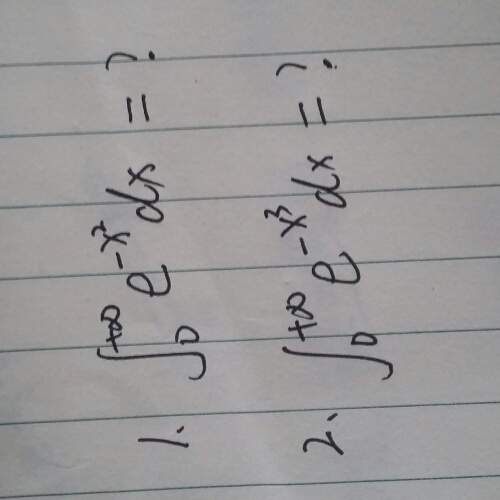 1. ∫₀^{+∞} e^{-x²} dx = ?
2. ∫₀^{+∞} e^{-x³} dx = ?